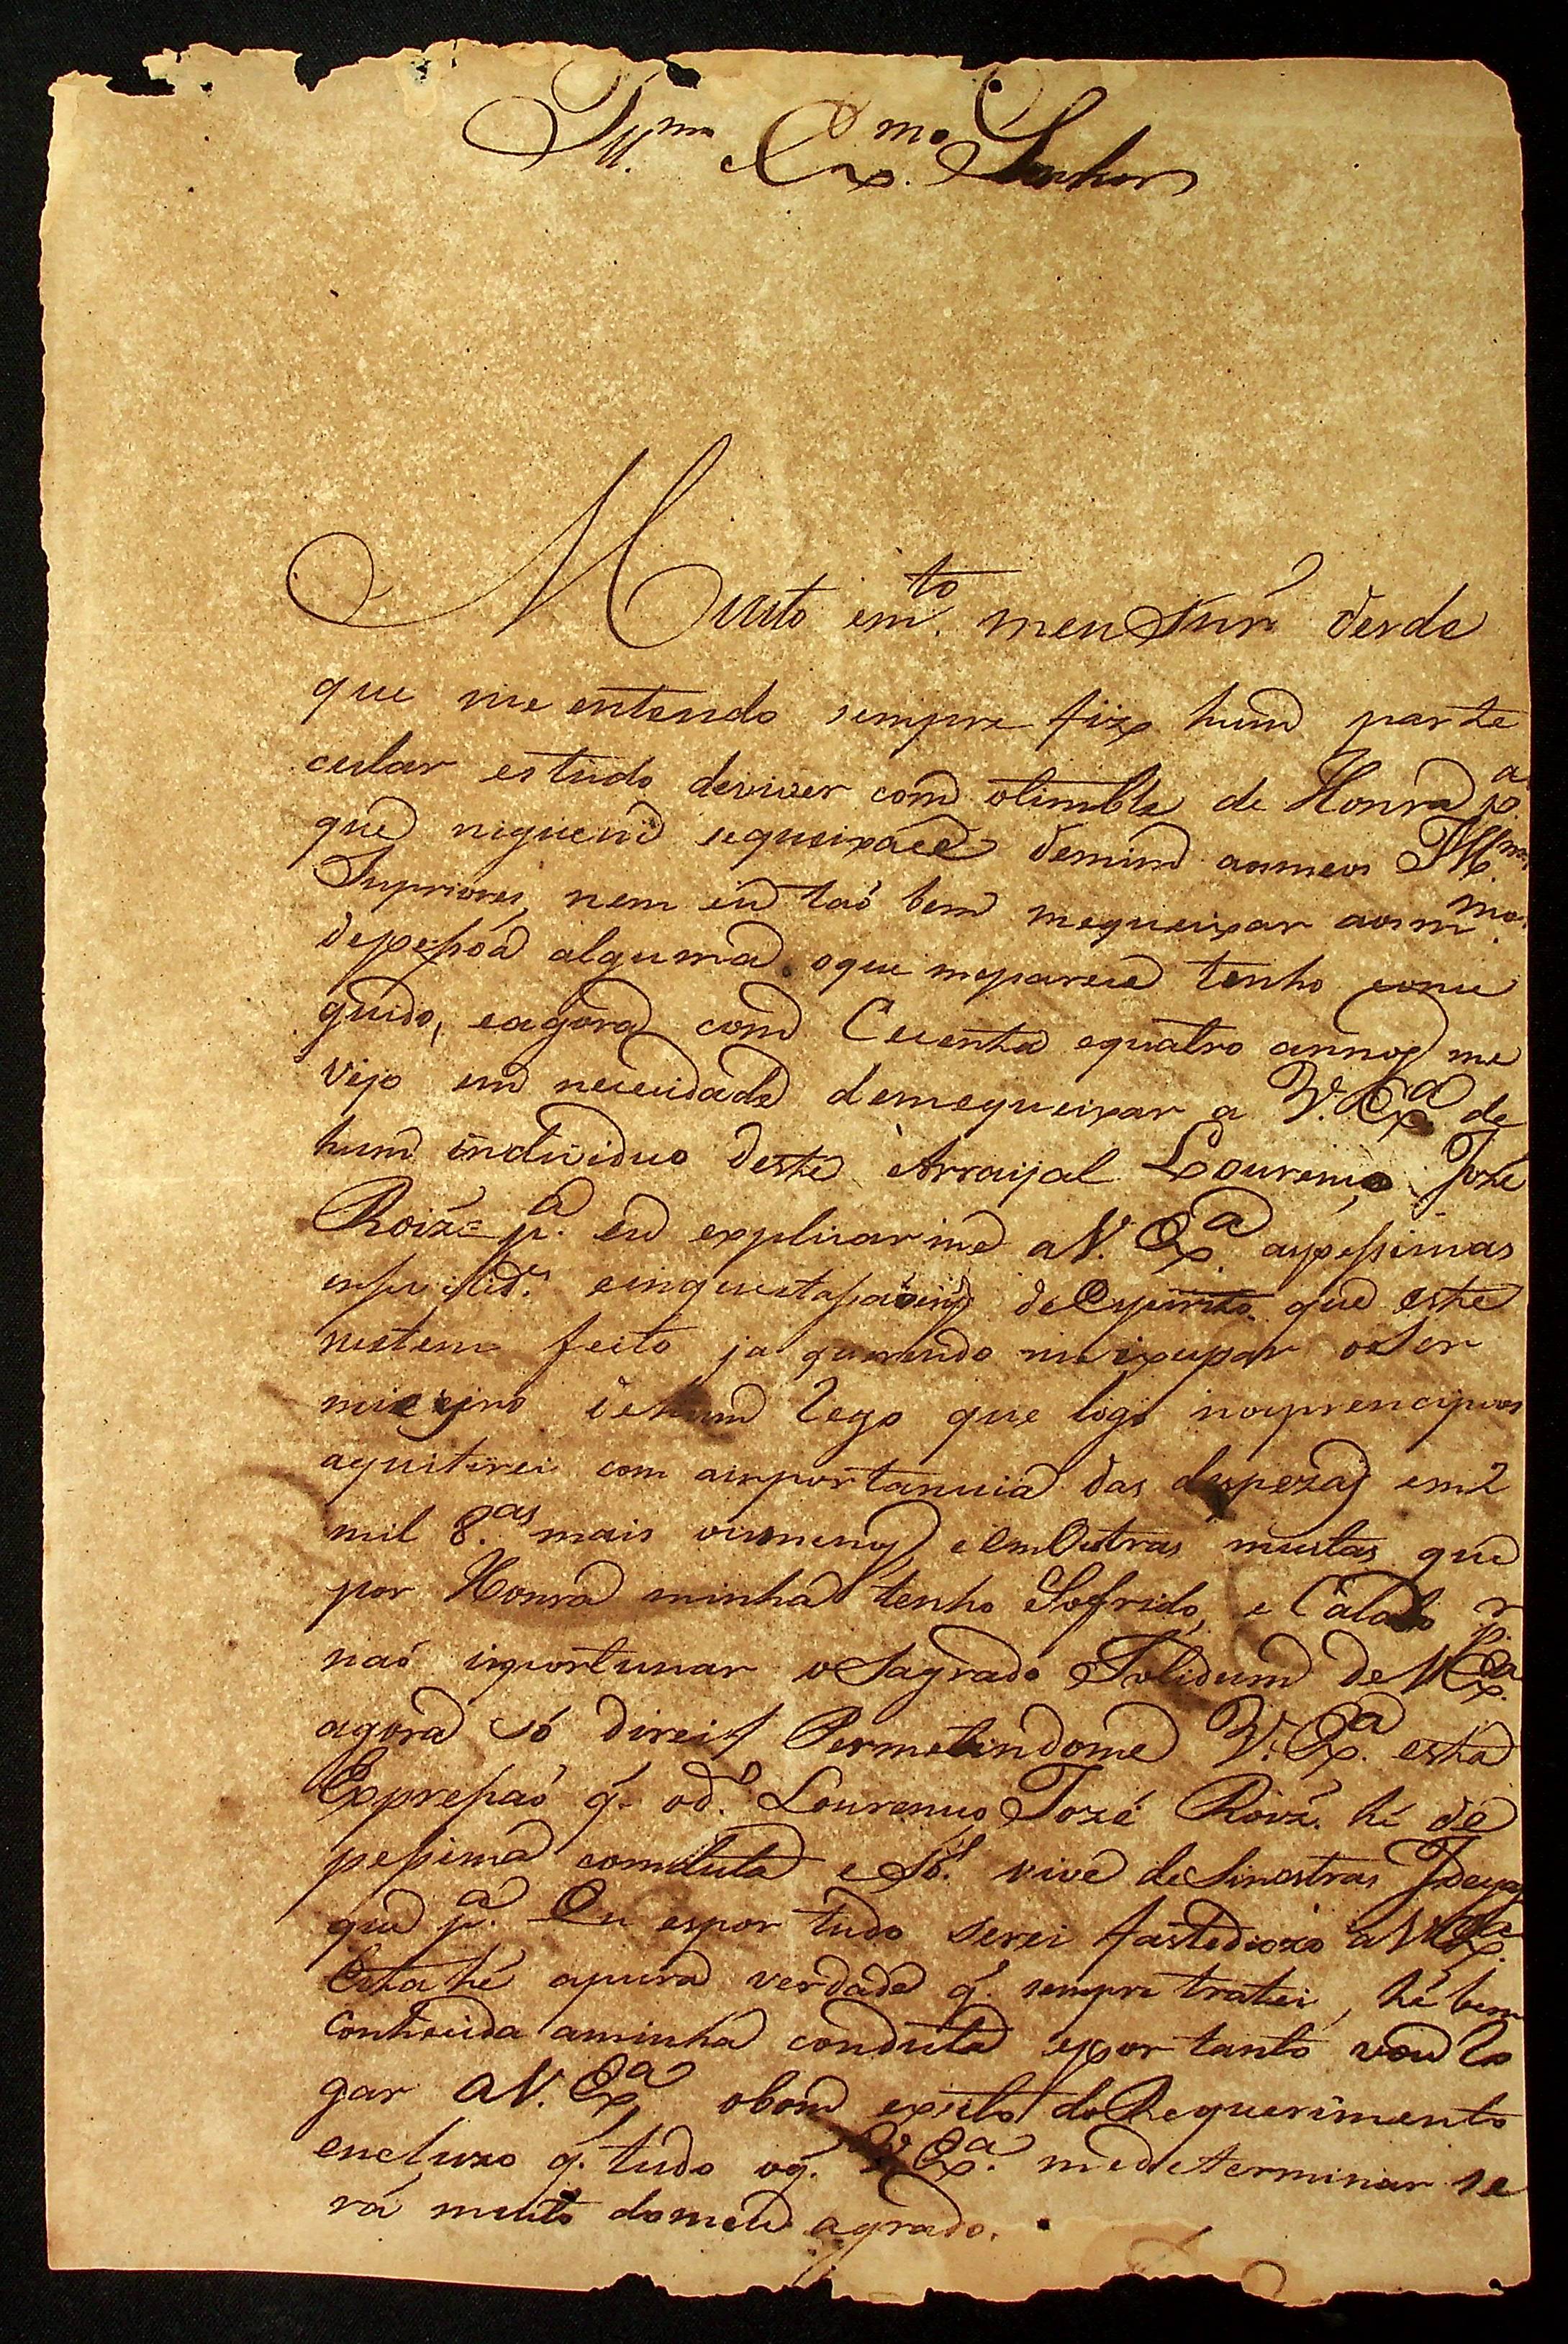 Ill.mo Ex.mo Senhor
Muito em.to meu Snr' desde
que me entendo sempre fiz hum parte
cular estudo deviver com otimble de Honra p.a
que niguem sequeixace demim aomeos Ill.mos
Supriores, nem eu taõ bem mequeixar aos m.mos
depessoa alguma, oque meparece tenho conce
guido, eagora com Cecenta equatro annos me
vejo em nececidade demequeixar a V. Ex.a de
hum individuo deste Arraýal Lourenço Jozé
Roiz= p.a eu explicarme aV. Ex.a aspessimas
einquietasoens deEspirito que este
metem feito ja querendo o Ser
de hum Rego que logo noprencipios
aquitirei com aimportancia das despezas em 2
mil 8.as mais oumenos, e emOutras muitas que
por Honra minha tenho Sofrido, e Calado p.r
naõ importunar o Sagrado Solidum de V. Ex.a
agora só direi Permetindome V. Ex.a esta
Expressaõ q' o d.o Lourenço Jozé Roiz. hé de
pessima comduta e Só vive de Sinestras Ideyas
que p.a Eu espor tudo serei fastediozo a V. Ex.a
Esta hé apura verdade q' sempre tratei, hé bem
Conhecida aminha conduta eportanto vou Ro
gar aV. Ex.a obom exzito do Requerimento
encluzo q' tudo oq' V. Ex.a medeterminar se
rá muito domeu agrado.